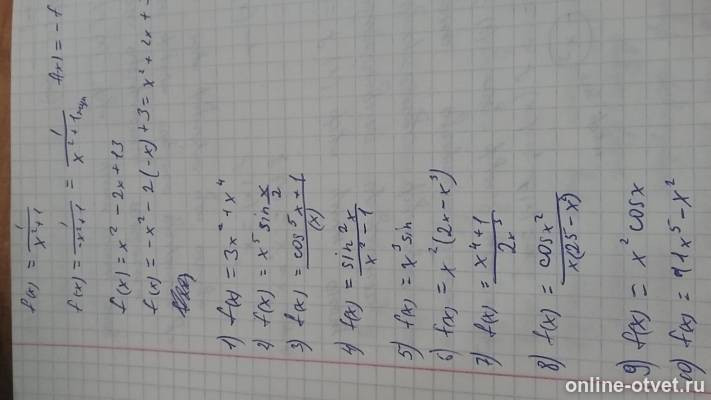 f(x) = 1/(x²+1)
f(x) = 1/(-x²+1) = 1/(x²+1) f(x) = -f
f(x) = x² - 2x + 13
f(x) = -x² - 2(-x) + 3 = x² + 2x +
1) f(x) = 3x² + x⁴
2) f(x) = x⁵ sin x/2
3) f(x) = (cos⁵x + 1)/(x)
4) f(x) = sin²x/(x² - 1)
5) f(x) = x³ sin
6) f(x) = x² (2x - x³)
7) f(x) = (x⁴ + 1)/2x³
8) f(x) = cos x²/x(25 - x)
9) f(x) = x² cos x
10) f(x) = 11x⁵ - x²
online-otvet.ru